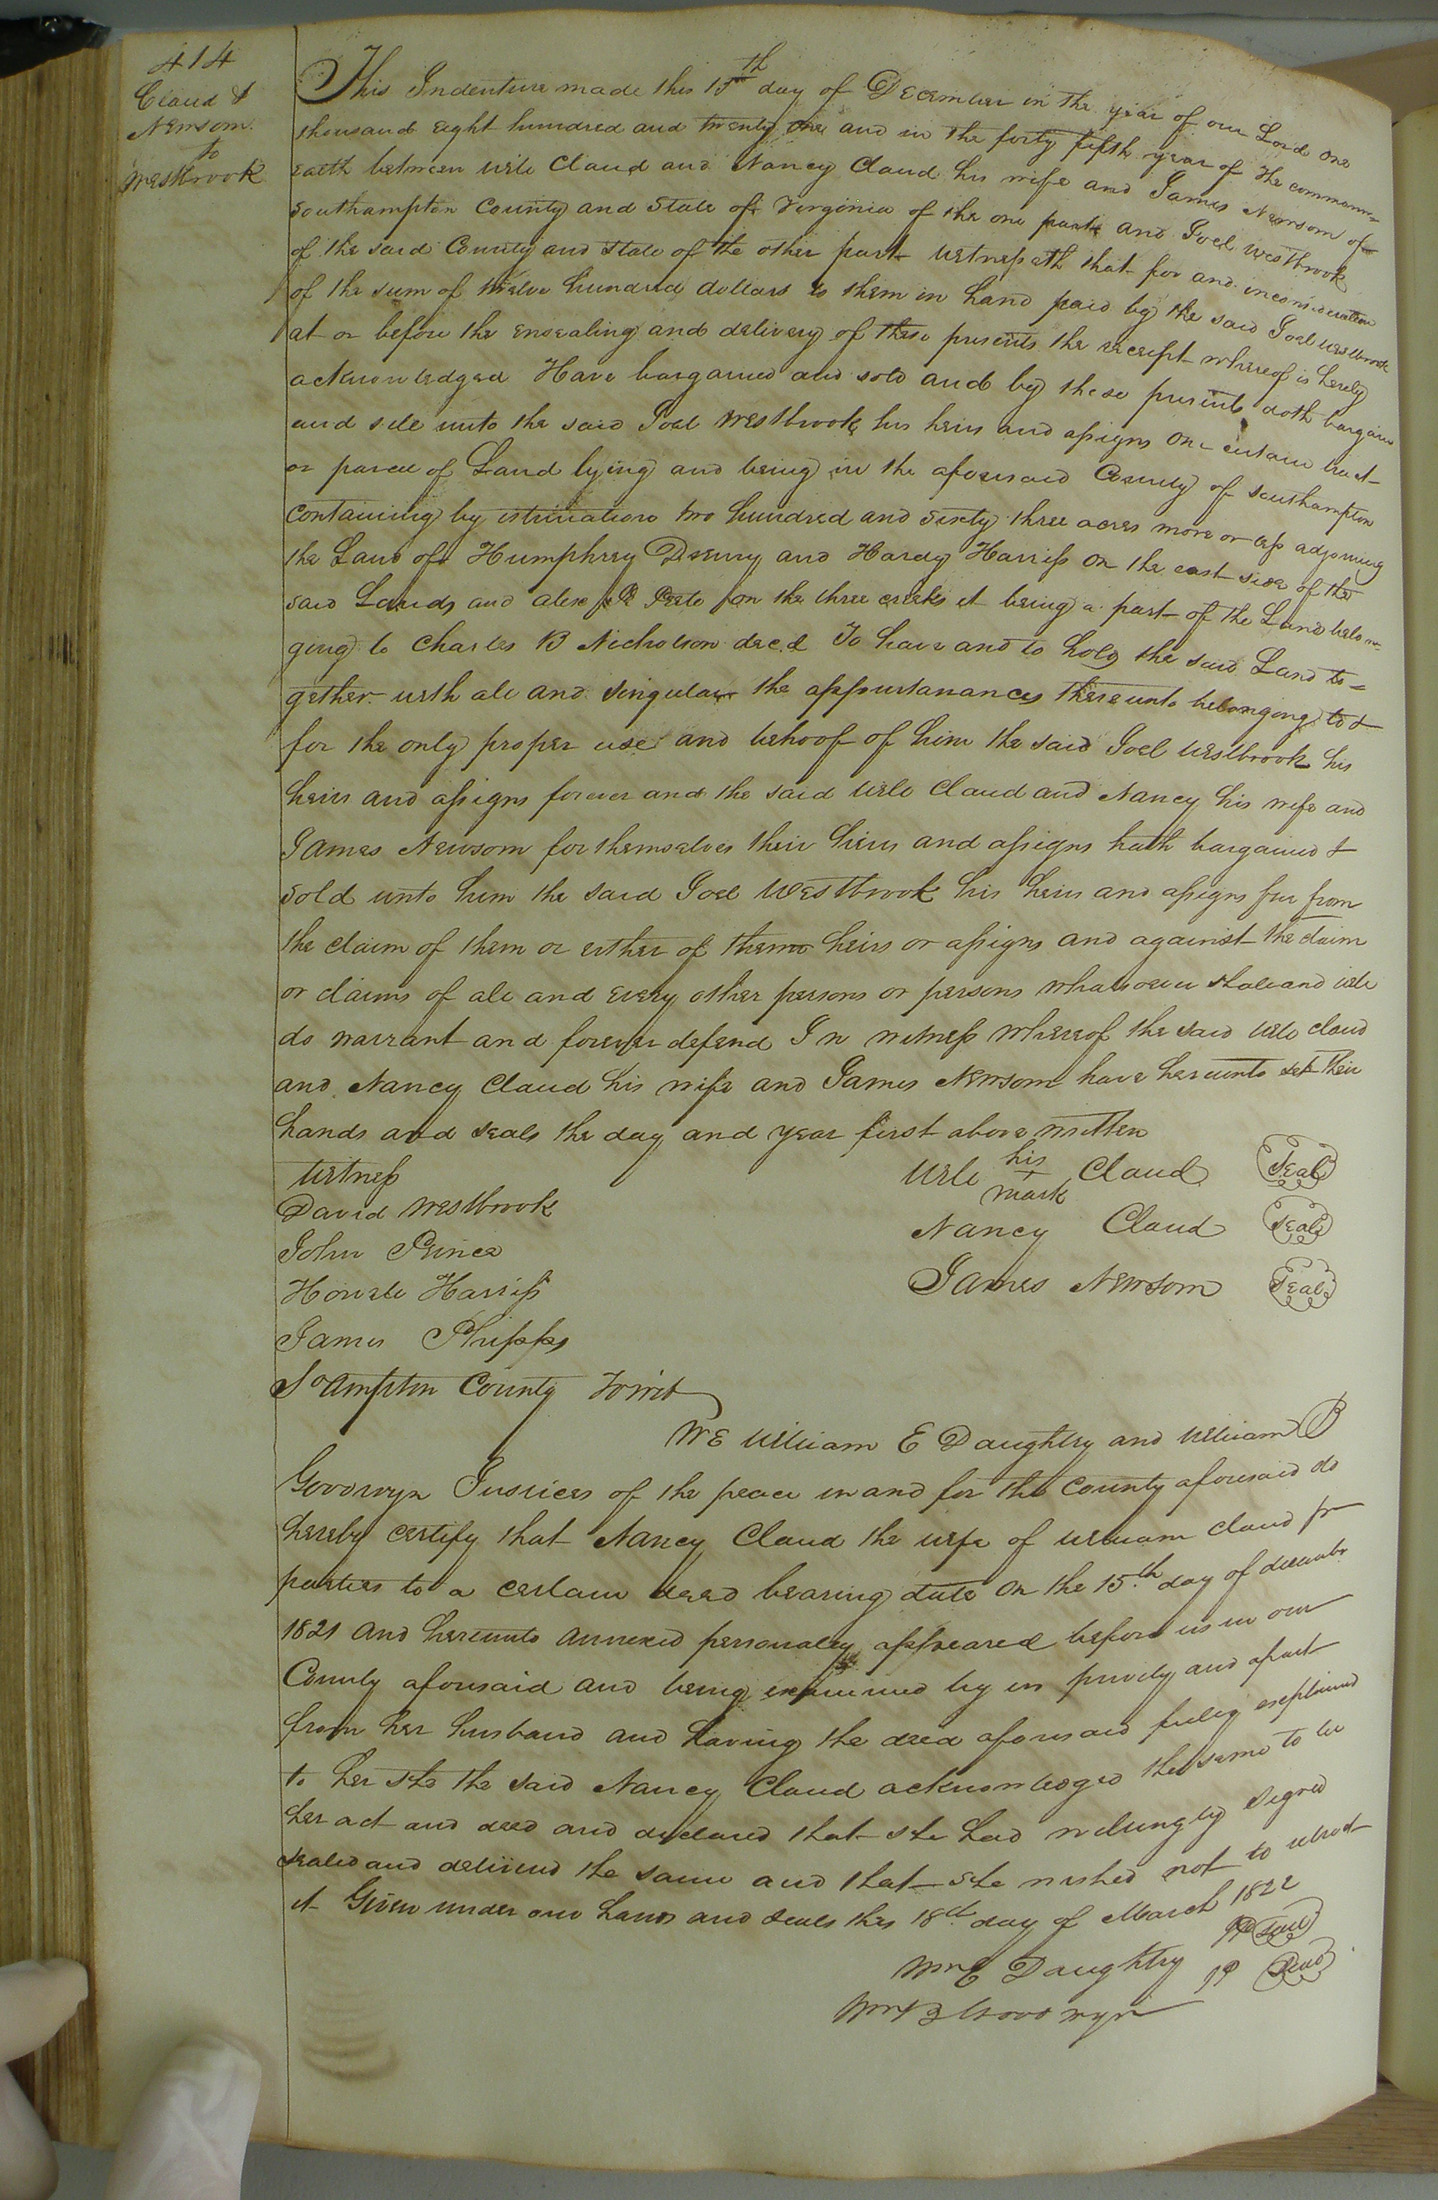 414
Claud &
Newsom
to
Westbrook
This Indenture made this 15th day of December in the year of our Lord one
thousand eight hundred and twenty one and in the forty fifth year of the common
wealth between Will Claud and Nancy Claud his wife and James Newsom of
Southampton County and State of Virginia of the one part and Joel Westbrook
of the said County and State of the other part Witnesseth that for and inconsideration
of the sum of twelve hundred dollars to them in hand paid by the said Joel Westbrook
at or before the ensealing and delivery of these presents the receipt whereof is hereby
acknowledged Have bargained and sold and by these presents doth bargain
and sell unto the said Joel Westbrook his heirs and assigns one certain tract
or parcel of Land lying and being in the aforesaid County of Southampton
containing by estimation two hundred and sixty three acres more or less adjoining
the Land of Humphrey Drewry and Hardy Harriss on the east side of the
said Lands and Pete on the three creeks it being a part of the Land belon
ging to Charles B Nicholson dec.d To have and to hold the said Land to=
gether with all and singular the appurtanances thereunto belonging to &
for the only proper use and behoof of him the said Joel Westbrook his
heirs and assigns forever and the said Will Claud and Nancy his wife and
James Newsom for themselves their heirs and assigns hath bargained &
sold unto him the said Joel Westbrook his heirs and assigns free from
the claim of them or either of them heirs or assigns and against the claim
or claims of all and every other persons or persons whatsoever shall and will
do warrant and forever defend In witness whereof the said Will Claud
and Nancy Claud his wife and James Newsom have hereunto set their
hands and seals the day and year first above written
Witness
Will his mark Claud Seal
David Westbrook
Nancy Claud Seal
John Prince
James Newsom Seal
Howell Harriss
James Phipps
So ampton County Towit
We William E Daughtry and William B
Goodwyn Justices of the peace in and for the County aforesaid do
hereby certify that Nancy Claud the wife of William Claud jr
parties to a certain deed bearing date on the 15th day of december
1821 and hereunto annexed personally appeared before us in our
County aforesaid and being examined by us privily and apart
from her husband and having the deed aforesaid fully explained
to her she the said Nancy Claud acknowledged the same to be
her act and deed and declared that she had willingly signed
sealed and delivered the same and that she wished not to retract
it Given under our hands and seals this 18th day of March 1822
Wm E Daughtry JP Seal
Wm B Goodwyn JP Seal